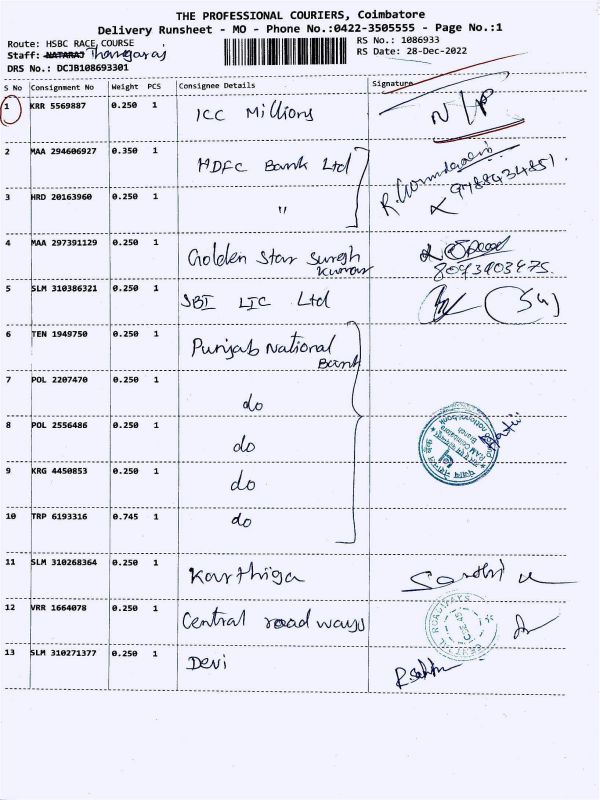 THE PROFESSIONAL COURIERS, Coimbatore
Delivery Runsheet - MO - Phone No.:0422-3505555 - Page No.:1
Route: HSBC RACE COURSE
RS No.: 1086933
Staff: NATARAJ Thangaraj
RS Date: 28-Dec-2022
DRS No.: DCJB108693301
S No Consignment No Weight PCS Consignee Details Signature
1 KRR 5569887 0.250 1 ICC Millions N/P
2 MAA 294606927 0.350 1 HDFC Bank Ltd
9788434851
3 HRD 20163960 0.250 1 "
4 MAA 297391129 0.250 1 Golden Star Suresh
Kumar 8043403475
5 SLM 310386321 0.250 1 SBI LIC Ltd
6 TEN 1949750 0.250 1 Punjab National
Bank
7 POL 2207470 0.250 1 do
8 POL 2556486 0.250 1 do
9 KRG 4450853 0.250 1 do
10 TRP 6193316 0.745 1 do
11 SLM 310268364 0.250 1 Karthiga
12 VRR 1664078 0.250 1 Central road ways
13 SLM 310271377 0.250 1 Devi